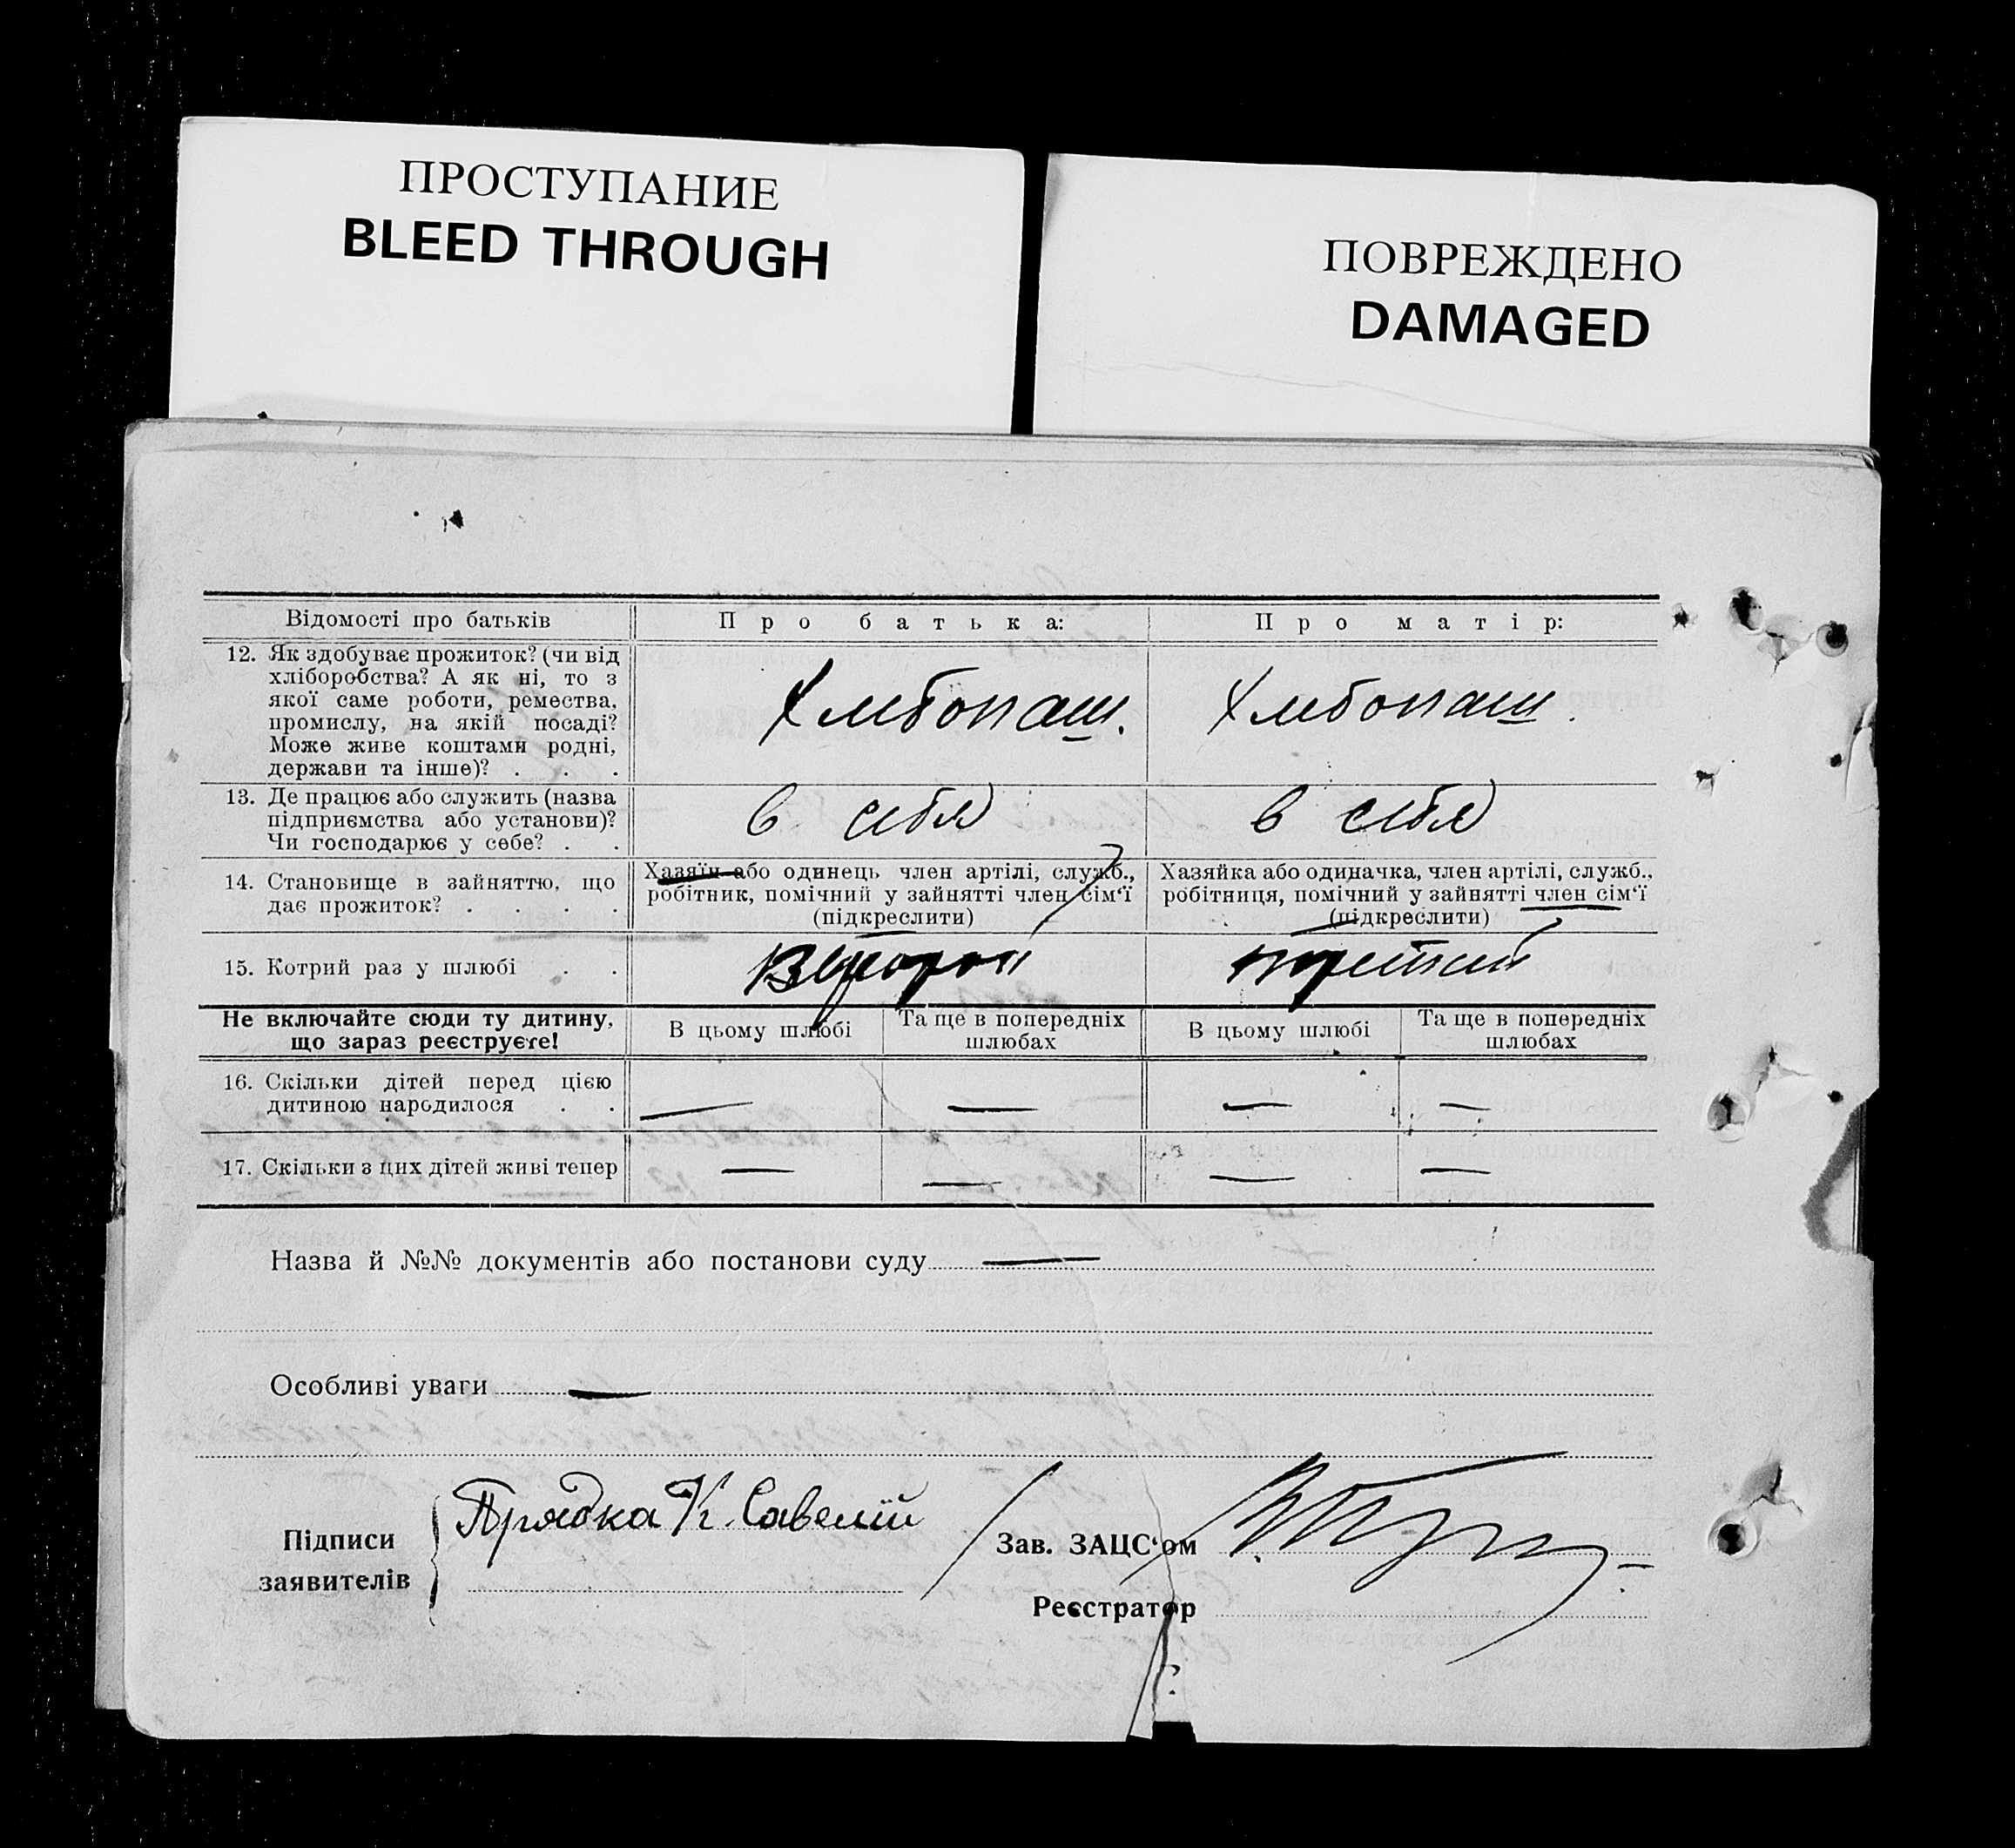 ПРОСТУПАНИЕ
BLEED THROUGH
ПОВРЕЖДЕНО
DAMAGED
Відомості про батьків
Про батька:
Про матір:
12. Як здобуває прожиток? (чи від
хліборобства? А як ні, то з
якої саме роботи, ремества,
промислу, на якій посаді?
Може живе коштами родні,
держави та інше)? . . .
Хлібопаш.
Хлібопаш.
13. Де працює або служить (назва
підприємства або установи)?
Чи господарює у себе? . .
в себя
в себя
14. Становище в зайняттю, що
дає прожиток? . . . .
Хазяїн або одинець член артілі, служб.,
робітник, помічний у зайнятті член сім'ї
(підкреслити)
Хазяйка або одиначка, член артілі, служб.,
робітниця, помічний у зайнятті член сім'ї
(підкреслити)
15. Котрий раз у шлюбі . .
Второй
третий
Не включайте сюди ту дитину,
що зараз реєструєте!
В цьому шлюбі
Та ще в попередніх
шлюбах
В цьому шлюбі
Та ще в попередніх
шлюбах
16. Скільки дітей перед цією
дитиною народилося . .
— — — —
17. Скільки з цих дітей живі тепер
— — — —
Назва й №№ документів або постанови суду —
Особливі уваги —
Підписи
заявителів
Прядка К. Савелій
Зав. ЗАЦС'ом
Реєстратор